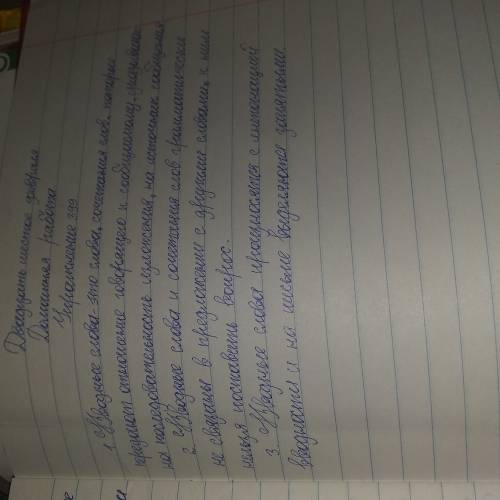 Двадцать шестое февраля
Домашняя работа
Упражнение 399
1. Вводные слова - это слова, сочетания слов, которые
отношение говорящего к сообщаемому, указывают
на последовательность изложения, на источник сообщения
2. Вводные слова и сочетания слов грамматически
не связаны в предложении с другими словами, к ним
нельзя поставить вопрос.
3. Вводные слова произносятся с интонацией
вводности и на письме выделяются запятыми